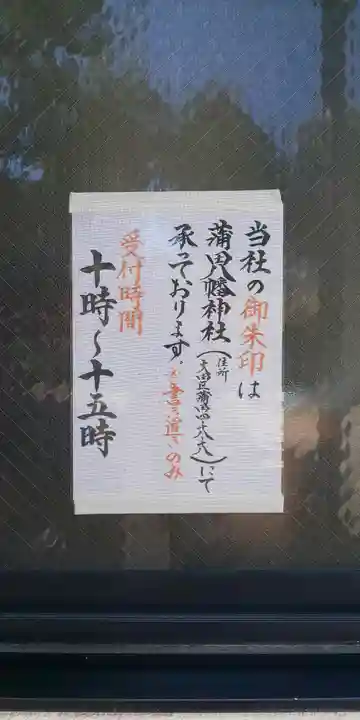 当社の御朱印は
蒲田八幡神社（住所 大田区蒲田四-十八-十八）にて
承っております。※書き置きのみ
受付時間
十時〜十五時